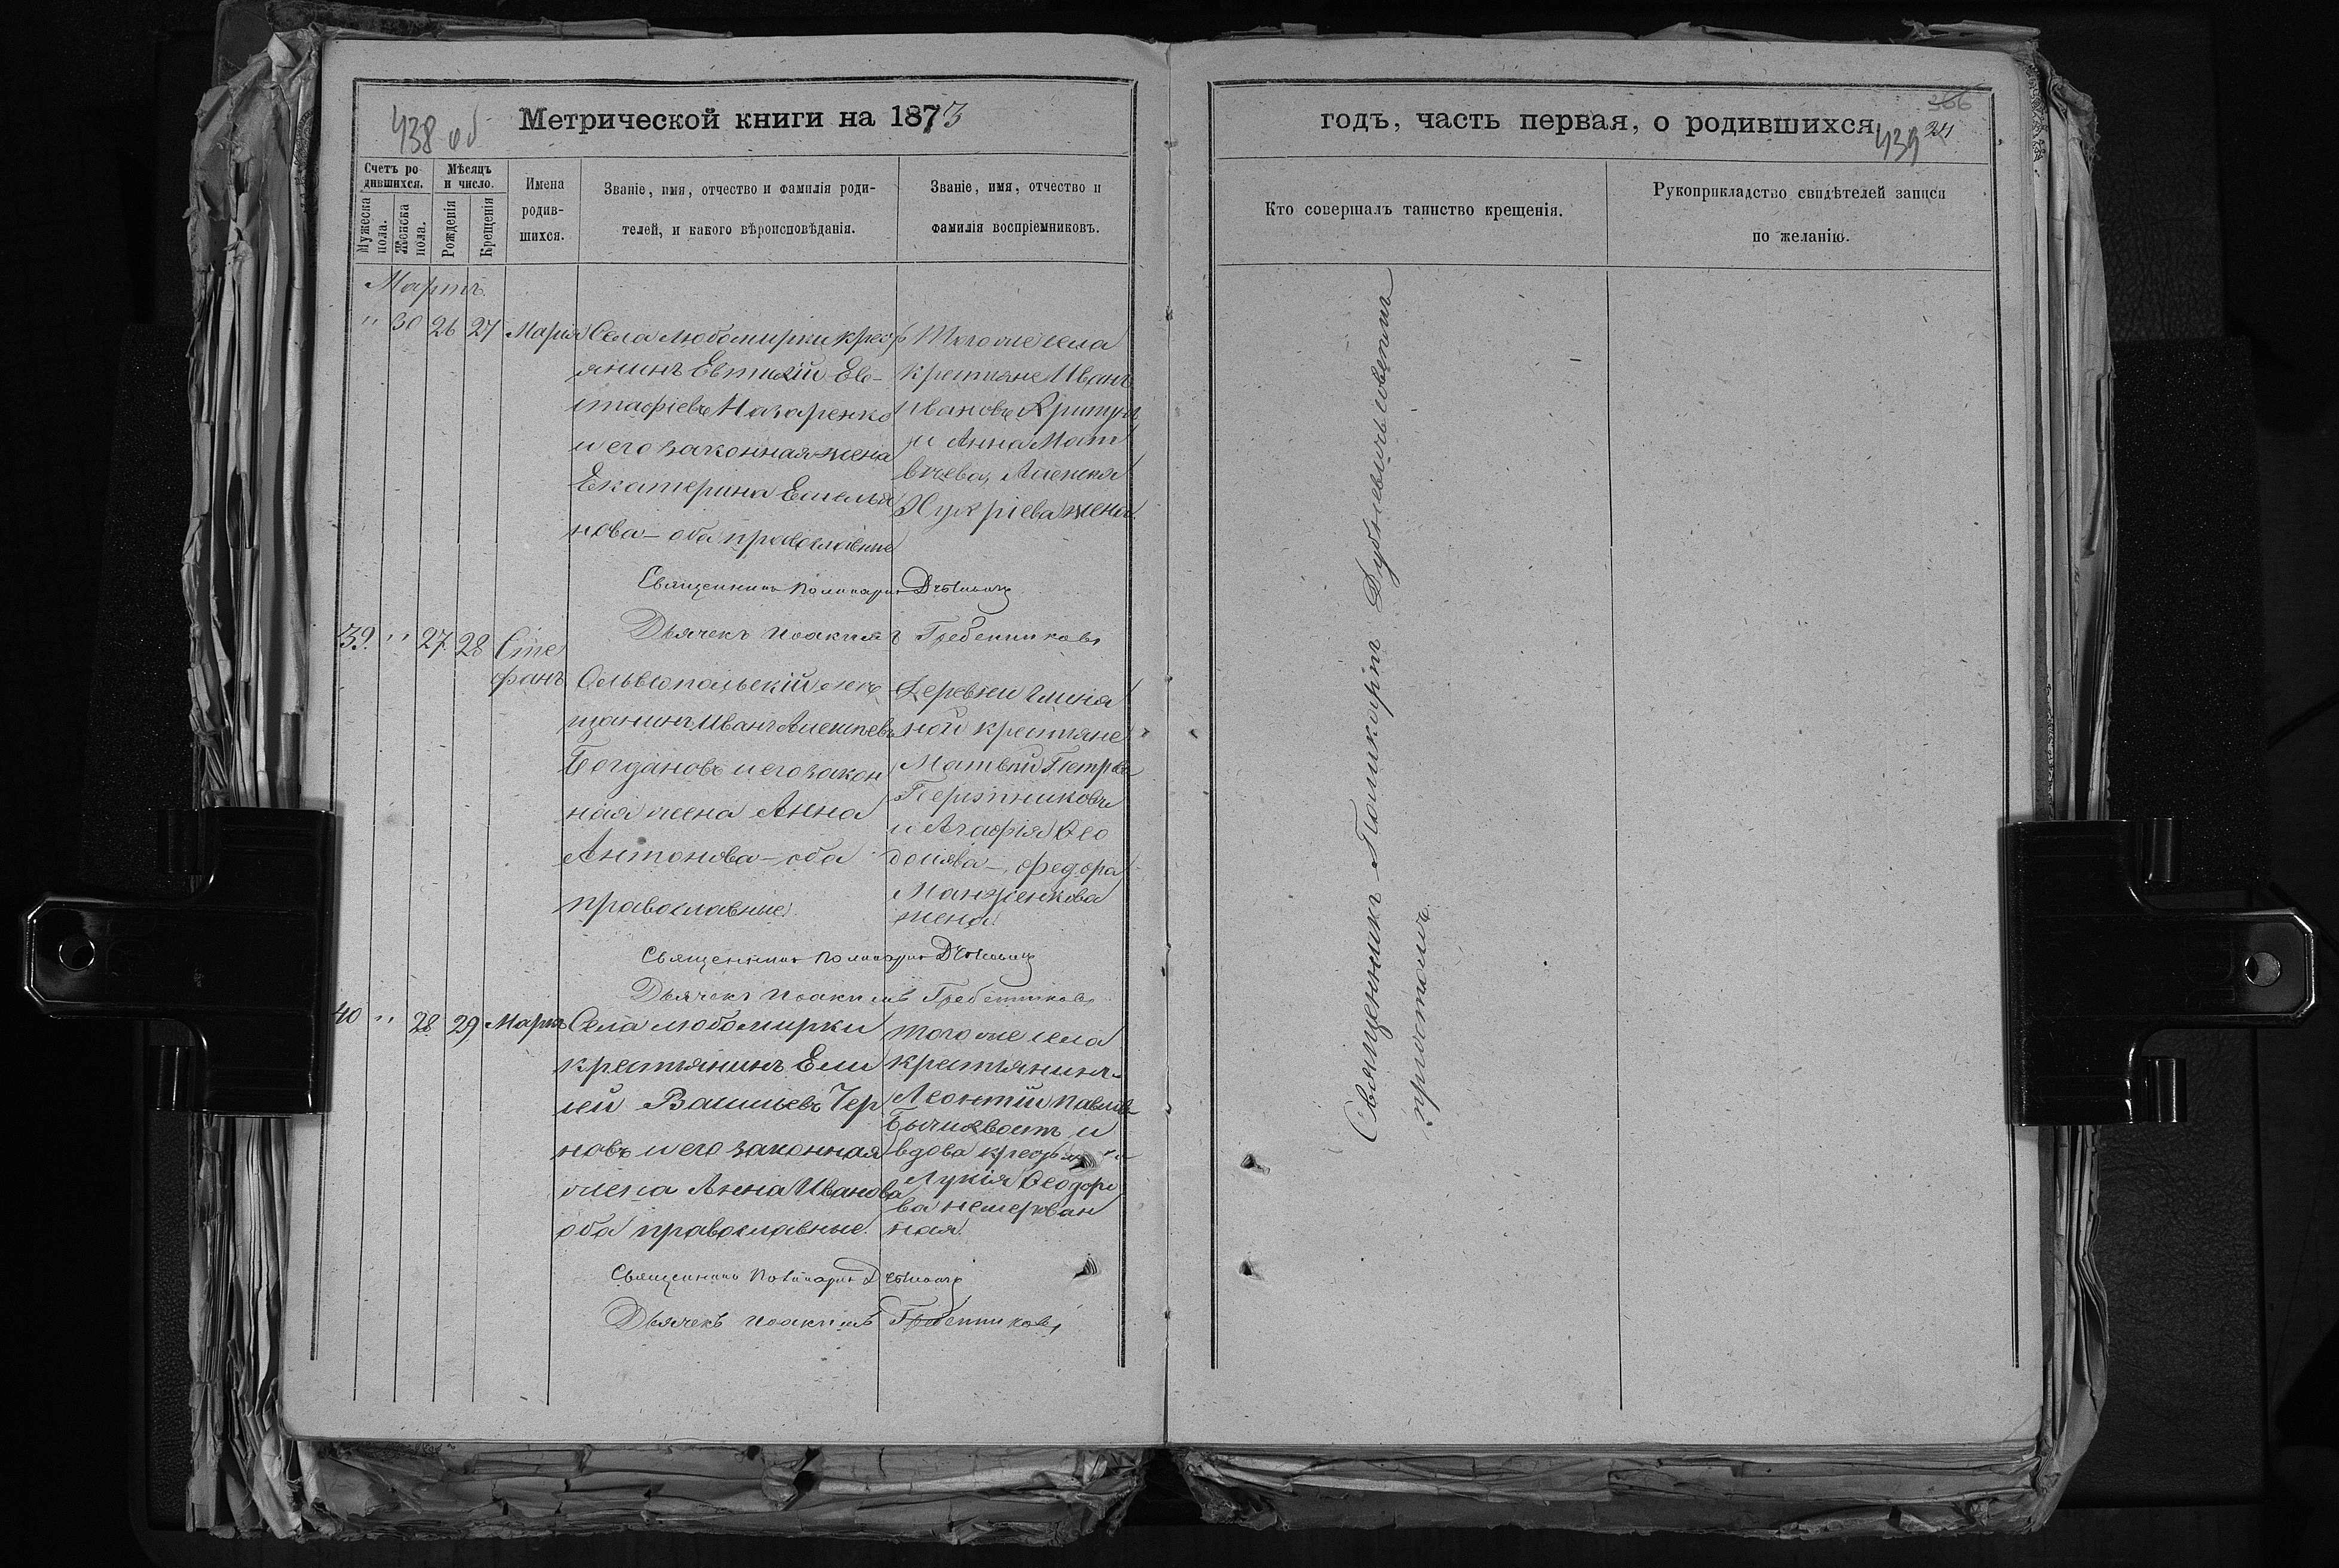 438 об
Метрической книги на 1873
Счетъ ро
дившихся.
Мѣсяцъ
и число.
Мужеска
пола.
Женска
пола.
Рожденія
Крещенія
Имена
родив-
шихся.
Званіе, имя, отчество и фамилія роди-
телей, и какого вѣроисповѣданія.
Званіе, имя, отчество и
фамилія воспріемниковъ.
Мартъ.
" 30 26 27 Марія
Села Любомирки крест
янинъ Евтихій Ев-
стафіевъ Назаренко
и его законная жена
Екатерина Емелья
нова - оба православные
Того же села
крестьяне Иванъ
Ивановъ
и Анна Мат
вѣева, Алексѣя
жена.
Священникъ Поликарпъ
Дьячекъ Иоакимъ Гребенниковъ
39. " 27 28 Сте
фанъ
Ольвіопольскій мѣ
щанинъ Иванъ Алексѣевъ
Богдановъ и его закон
ная жена Анна
Антонова - оба
православные.
Деревни Глиня
ной крестьяне
Матвѣй Петровъ
и Агафія Ѳео
дорова - Федора
жена.
Священникъ Поликарпъ
Дьячекъ Иоакимъ Гребенниковъ
40 " 28 29 Маркъ
Села Любомирки
крестьянинъ Ели
сей Васильевъ Чер
новъ и его законная
жена Анна Иванова
оба православные.
Того же села
крестьянинъ
Леонтій Павловъ
и
вдова
Лукія Ѳеодоро
ва
ная.
Священникъ Поликарпъ
Дьячекъ Иоакимъ Гребенниковъ
годъ, часть первая, о родившихся
439
24
Кто совершалъ таинство крещенія.
Рукоприкладство свидѣтелей записи
по желанію.
Священникъ Поликарпъ съ
причтомъ.